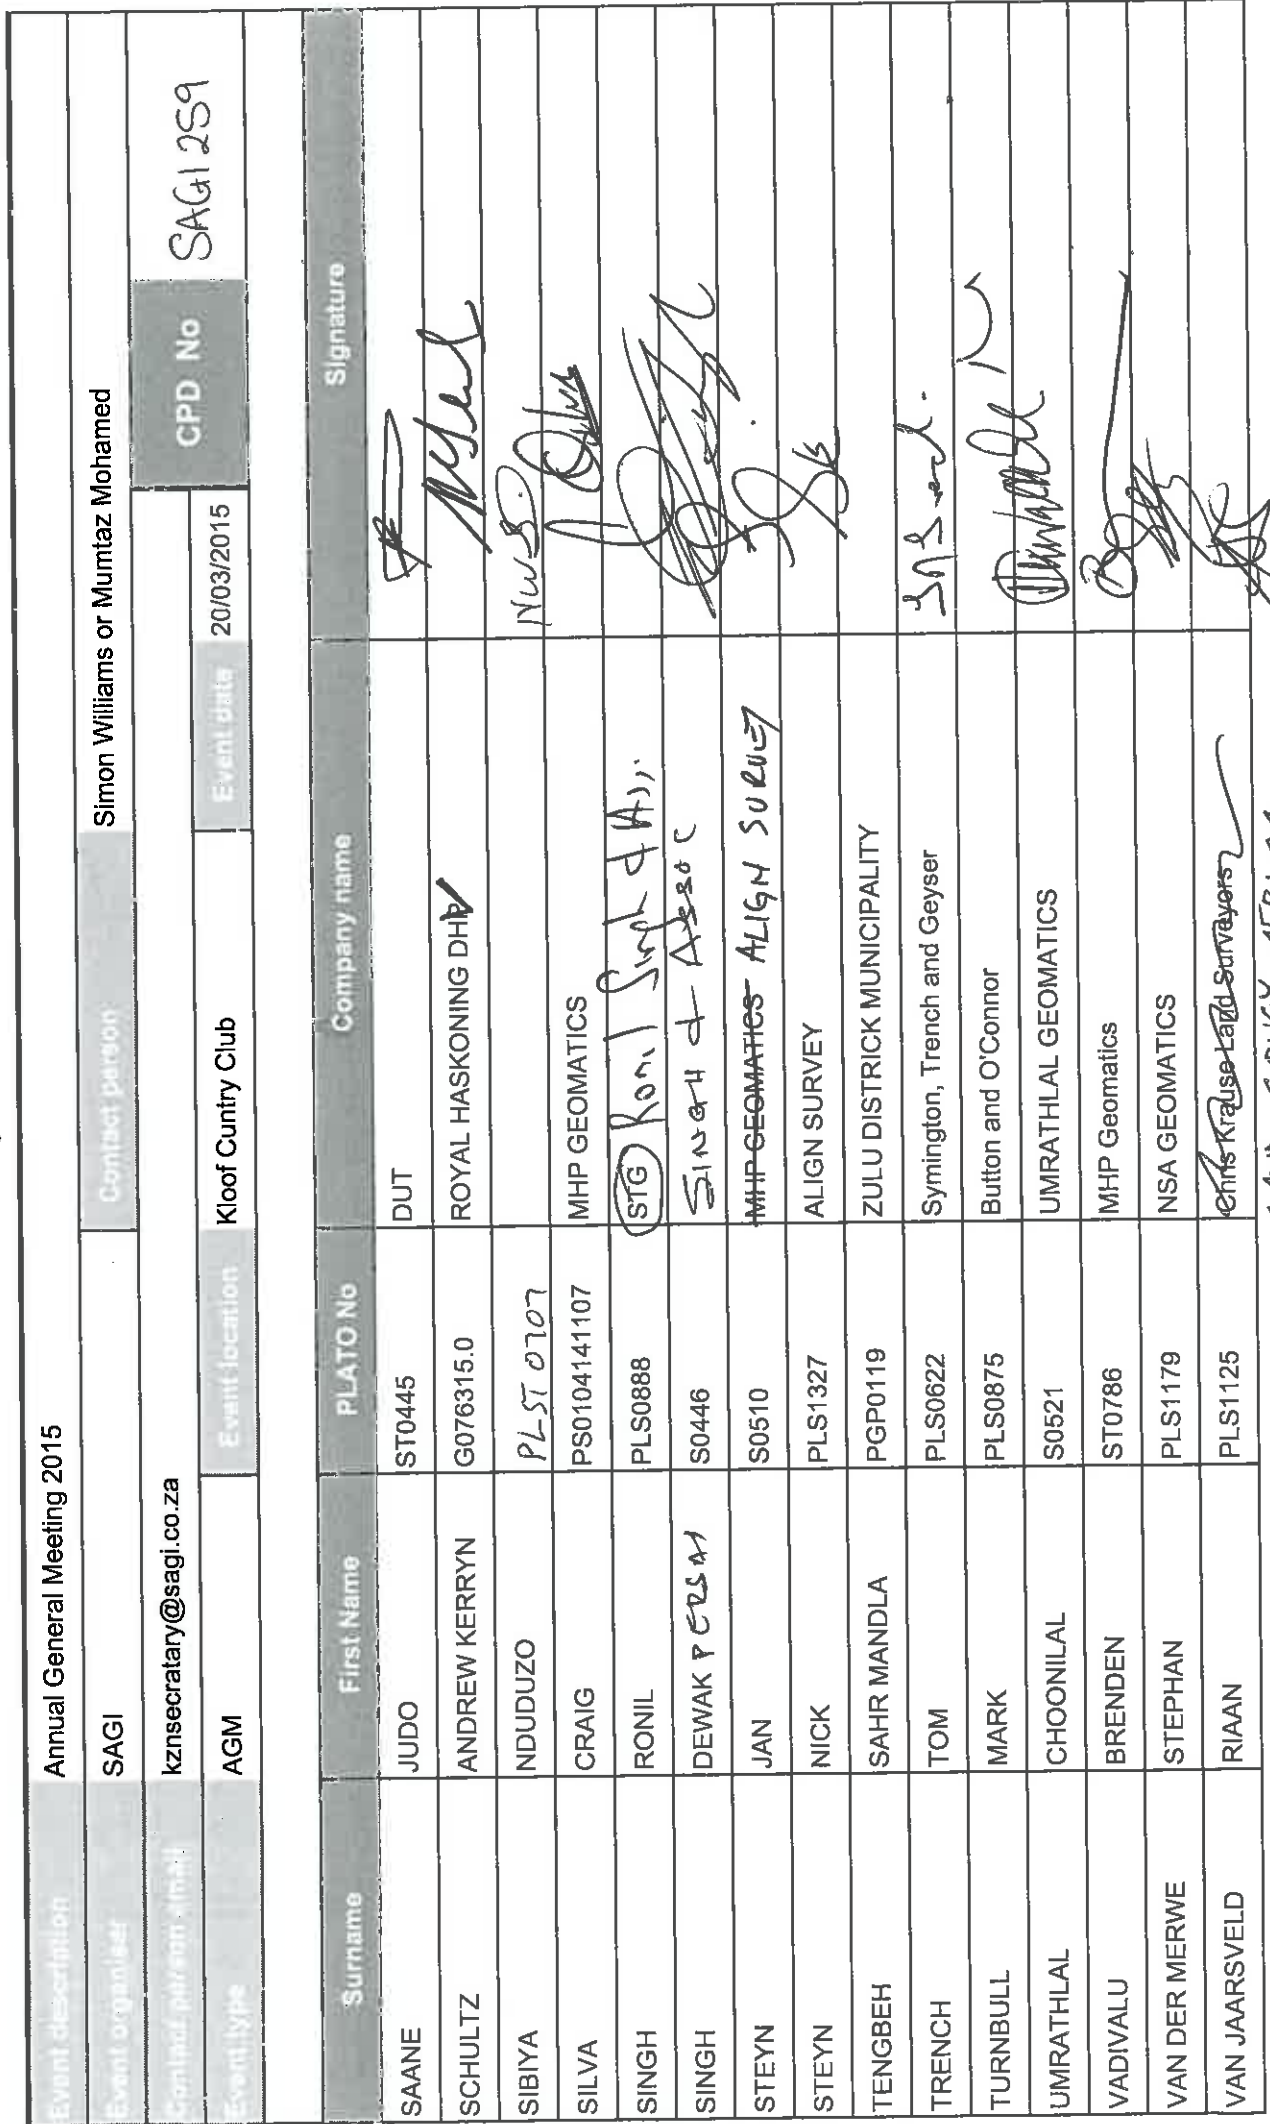 Event description Annual General Meeting 2015
Event organiser SAGI Contact person Simon Williams or Mumtaz Mohamed
Contact person email kznsecratary@sagi.co.za CPD No SAGI 259
Event type AGM Event location Kloof Cuntry Club Event date 20/03/2015
Surname First Name PLATO No Company name Signature
SAANE JUDO ST0445 DUT
SCHULTZ ANDREW KERRYN G076315.0 ROYAL HASKONING DHV
SIBIYA NDUDUZO PLST 0707
SILVA CRAIG PS0104141107 MHP GEOMATICS
SINGH RONIL PLS0888 STG Ronil Singh & Ass.
SINGH DEWAK PERSAD S0446 SINGH & ASSOC
STEYN JAN S0510 MHP GEOMATICS ALIGN SURVEY
STEYN NICK PLS1327 ALIGN SURVEY
TENGBEH SAHR MANDLA PGP0119 ZULU DISTRICK MUNICIPALITY
TRENCH TOM PLS0622 Symington, Trench and Geyser
TURNBULL MARK PLS0875 Button and O'Connor
UMRATHLAL CHOONILAL S0521 UMRATHLAL GEOMATICS
VADIVALU BRENDEN ST0786 MHP Geomatics
VAN DER MERWE STEPHAN PLS1179 NSA GEOMATICS
VAN JAARSVELD RIAAN PLS1125 Chris Krause Land Surveyors